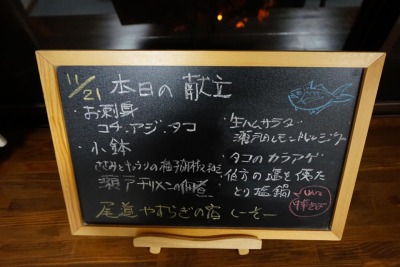 11/21 本日の献立
・お刺身
コチ・アジ・タコ
・小鉢
ささみとキュウリの梅
瀬戸チリメンの
・生ハムサラダ
瀬戸田レモンドレッシング
・タコのカラアゲ
・伯方の塩を使た
とり塩鍋
尾道 やすらぎの宿 しーそー